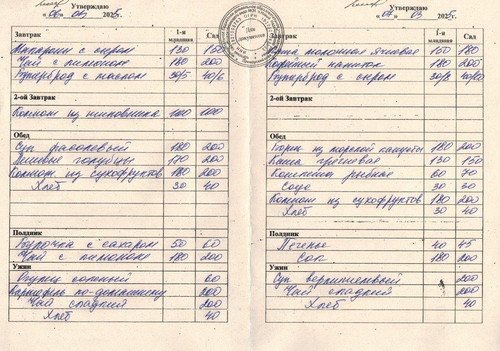 Утверждаю
03 2025г.
1-я младшая
Сад
Завтрак
Макароны с сыром 130 150
Чай с лимоном 180 200
Бутерброд с маслом 30/5 40/6
2-ой Завтрак
Компот из шиповника 100 100
Обед
Суп фасолевый 180 200
Ленивые голубцы 170 200
Компот из сухофруктов 180 200
Хлеб 30 40
Полдник
Булочка с сахаром 50 60
Чай с лимоном 180 200
Ужин
Огурец соленый 60
Картофель по-домашнему 200
Чай сладкий 200
Хлеб 40
Утверждаю
03 2025г.
1-я младшая
Сад
Завтрак
Каша молочная ячневая 150 180
Кофейный напиток 180 200
Бутерброд с сыром
2-ой Завтрак
Обед
Борщ из морской капусты 180 200
Каша гречневая 130 150
Котлета рыбная 60 70
Соус 30 30
Компот из сухофруктов 180 200
Хлеб 30 40
Полдник
Печенье 40 45
Сок 180 200
Ужин
Суп вермишелевый 200
Чай сладкий 200
Хлеб 40